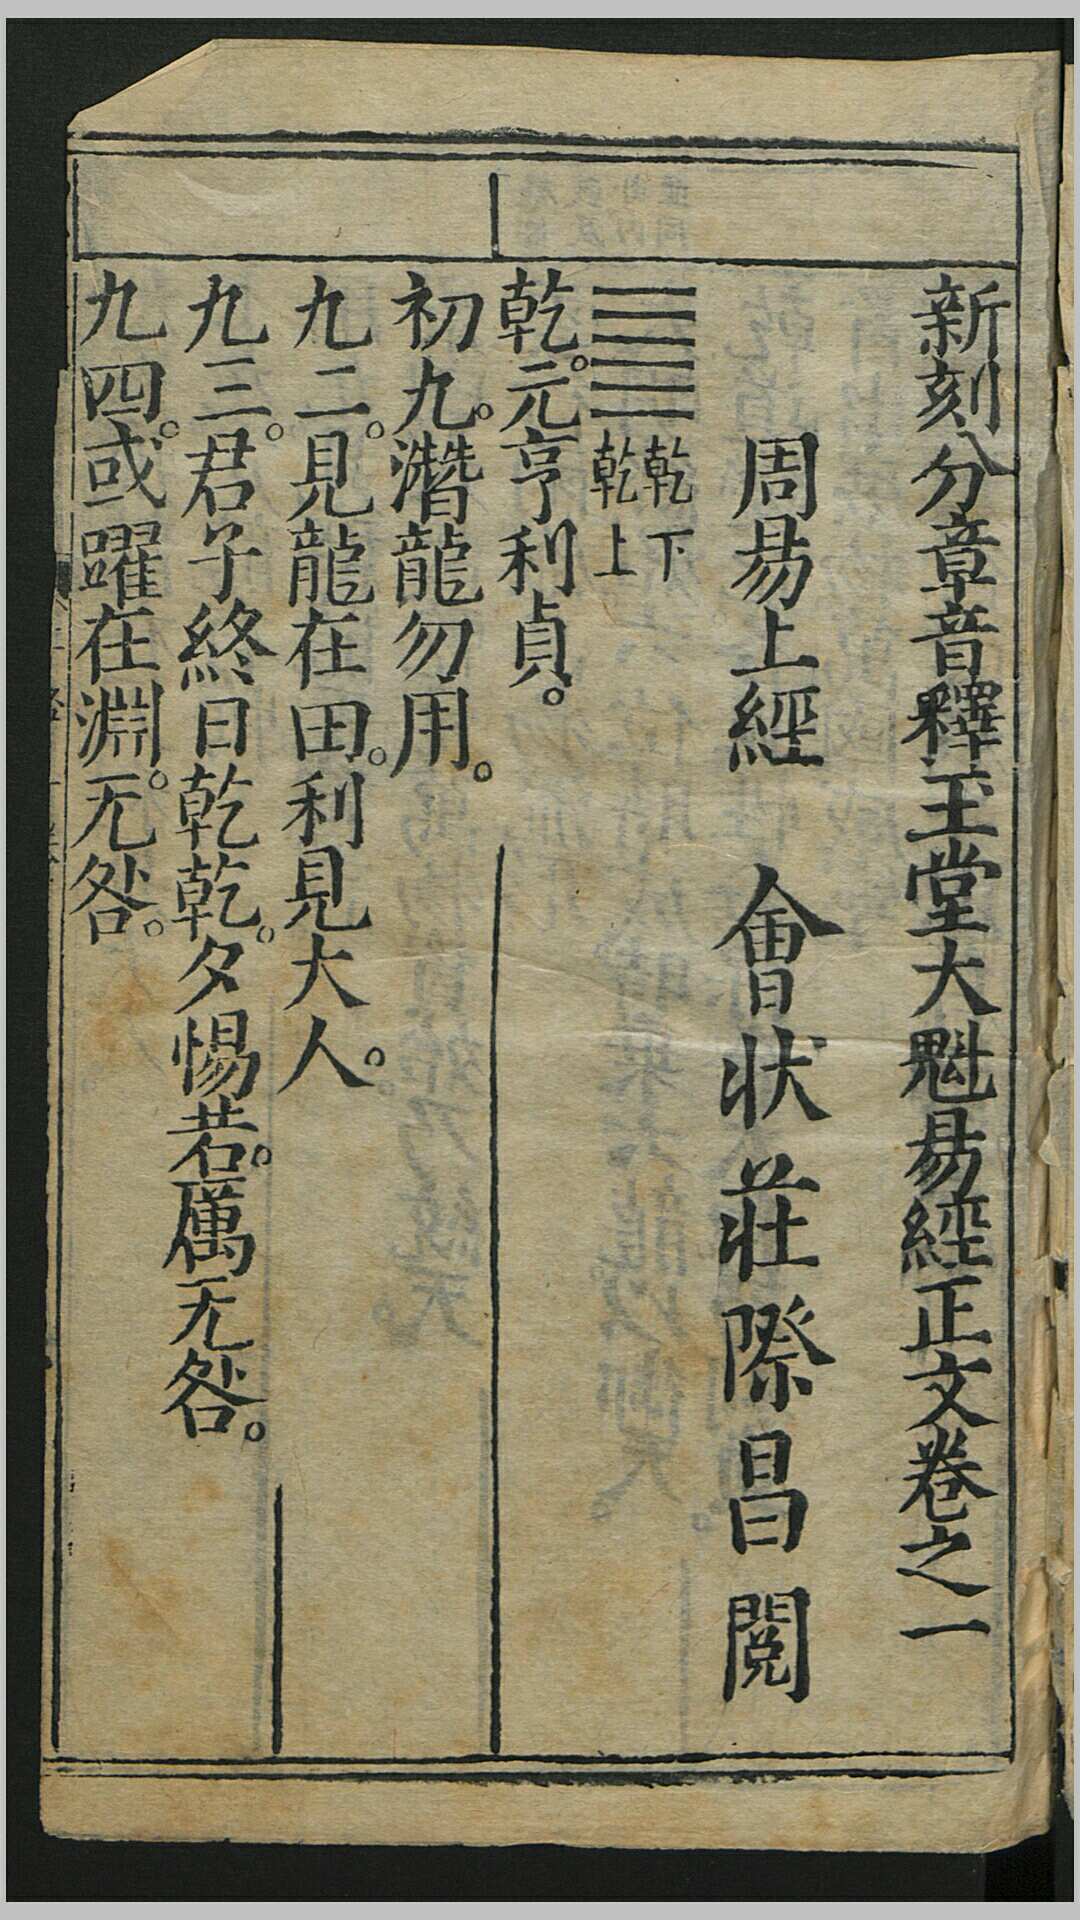 新刻分章音釋玉堂大魁易經正文卷之一
周易上經
會狀莊際昌閱
乾下
乾上
乾。元亨利貞。
初九。潛龍勿用。
九二。見龍在田。利見大人。
九三。君子終日乾乾。夕惕若。厲无咎。
九四。或躍在淵。无咎。